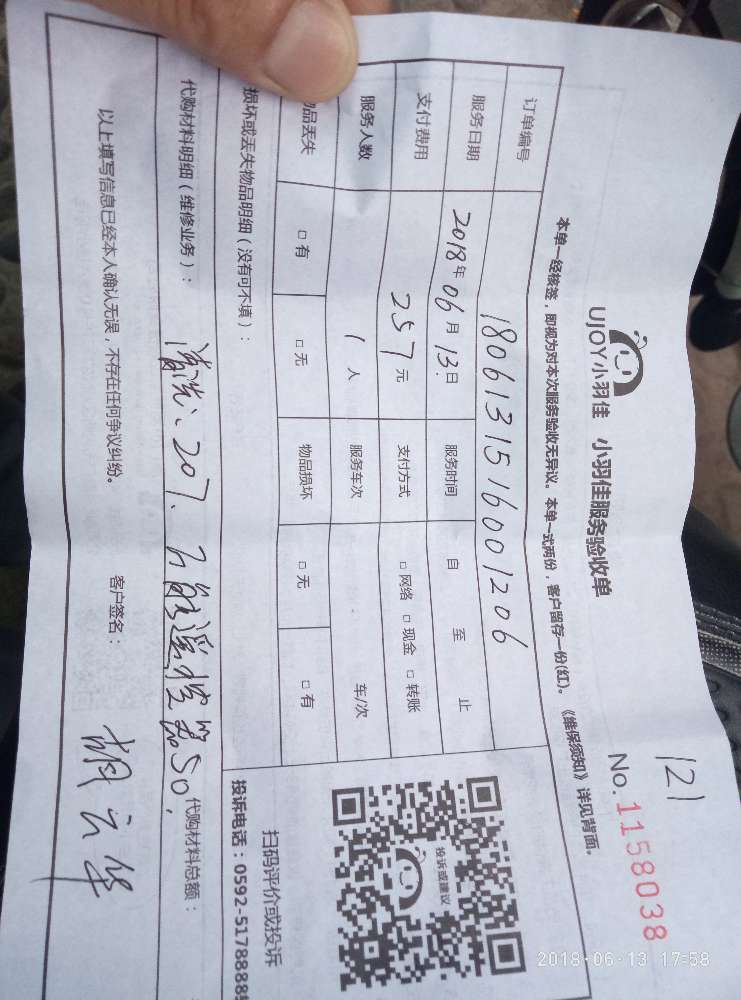 121
No.1158038
UJOY小羽佳 小羽佳服务验收单
本单一经核签，即视为对本次服务验收无异议。本单一式两份，客户留存一份(红)。《维保须知》详见背面。
订单编号 1806131516001206
服务日期 2018年06月13日 服务时间 自 至 止
支付费用 257元 支付方式 □网络 □现金 □转账
服务人数 1人 服务车次 车/次
品丢失 □有 □无 物品损坏 □无 □有
损坏或丢失物品明细（没有可不填）：
代购材料明细（维修业务）： 清洗、207、万能遥控器50， 代购材料总额：
以上填写信息已经本人确认无误，不存在任何争议纠纷。 客户签名： 胡云华
投诉或建议
扫码评价或投诉
投诉电话：0592-5178888
2018-06-13 17:58